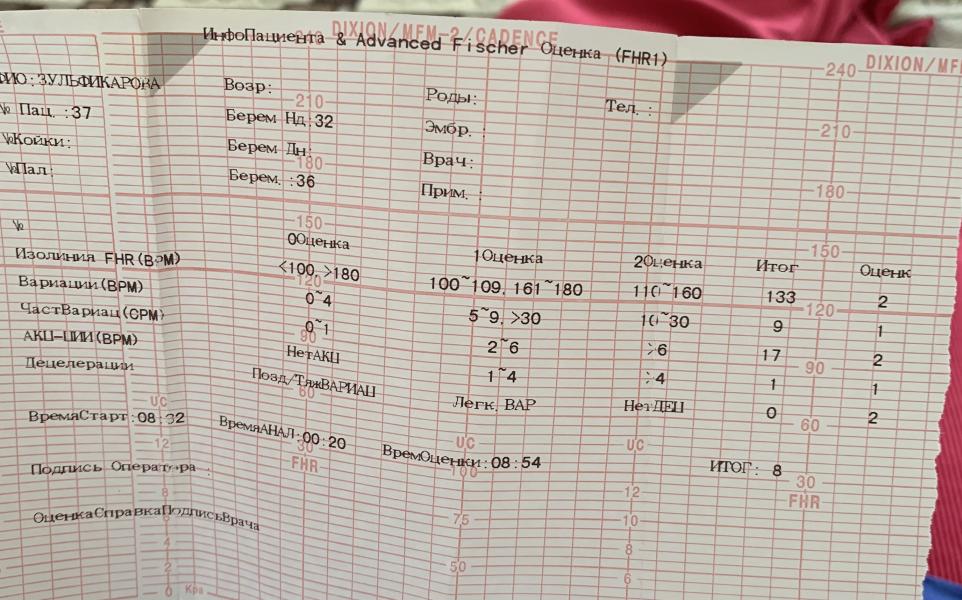 DIXION/MFM-2/CADENCE
ИнфоПациента & Advanced Fischer Оценка (FHR1)
240 DIXION/MF
ФИО:ЗУЛЬФИКАРОВА Возр: Роды: Тел. :
210 210
№ Пац. :37 Берем Нд:32 Эмбр. :
№Койки: Берем Дн: Врач:
180 180
№Пал: Берем. :36 Прим. :
150 150
№ 0Оценка 1Оценка 2Оценка Итог Оценк
Изолиния FHR(BPM) <100, >180 100~109, 161~180 110~160 133 2
120 120
Вариации(BPM) 0~4 5~9, >30 10~30 9 1
ЧастВариац(CPM) 0~1 2~6 >6 17 2
90 90
АКЦ-ЦИИ(BPM) НетАКЦ 1~4 >4 1 1
Децелерации Позд/ТяжВАРИАЦ Легк. ВАР НетДЕЦ 0 2
60 60
UC
ВремяСтарт:08:32 ВремяАНАЛ:00:20 ВремОценки:08:54
12 30 UC UC
FHR 100
Подпись Оператора : ИТОГ: 8
30
8 12 FHR
ОценкаСправкаПодписьВрача
6 75 10
4 8
2 50 6
0 Кра